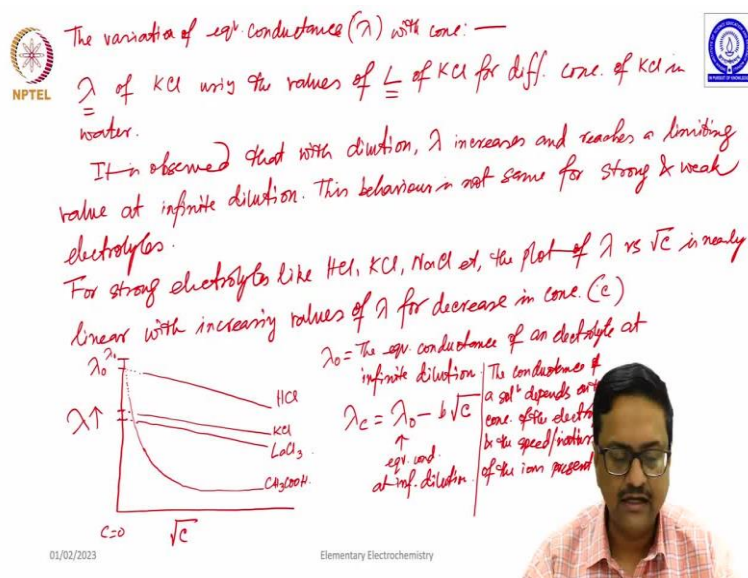 The variation of eqv. conductance (λ) with conc: —
λ of KCl using the values of L of KCl for diff. conc. of KCl in
water.
It is observed that with dilution, λ increases and reaches a limiting
value at infinite dilution. This behaviour is not same for strong & weak
electrolytes.
For strong electrolytes like HCl, KCl, NaCl et, the plot of λ vs √c is nearly
linear with increasing values of λ for decrease in conc. (c)
λ₀ = The eqv. conductance of an electrolyte at
infinite dilution
λc = λ₀ − b√c
↑
eqv. cond.
at inf. dilution.
The conductance of
a solⁿ depends on
conc. of the
& the speed/
of the ions present
λ₀
λ ↑
HCl
KCl
LaCl₃
CH₃COOH.
C=0
√c
NPTEL
IN PURSUIT OF KNOWLEDGE
01/02/2023
Elementary Electrochemistry